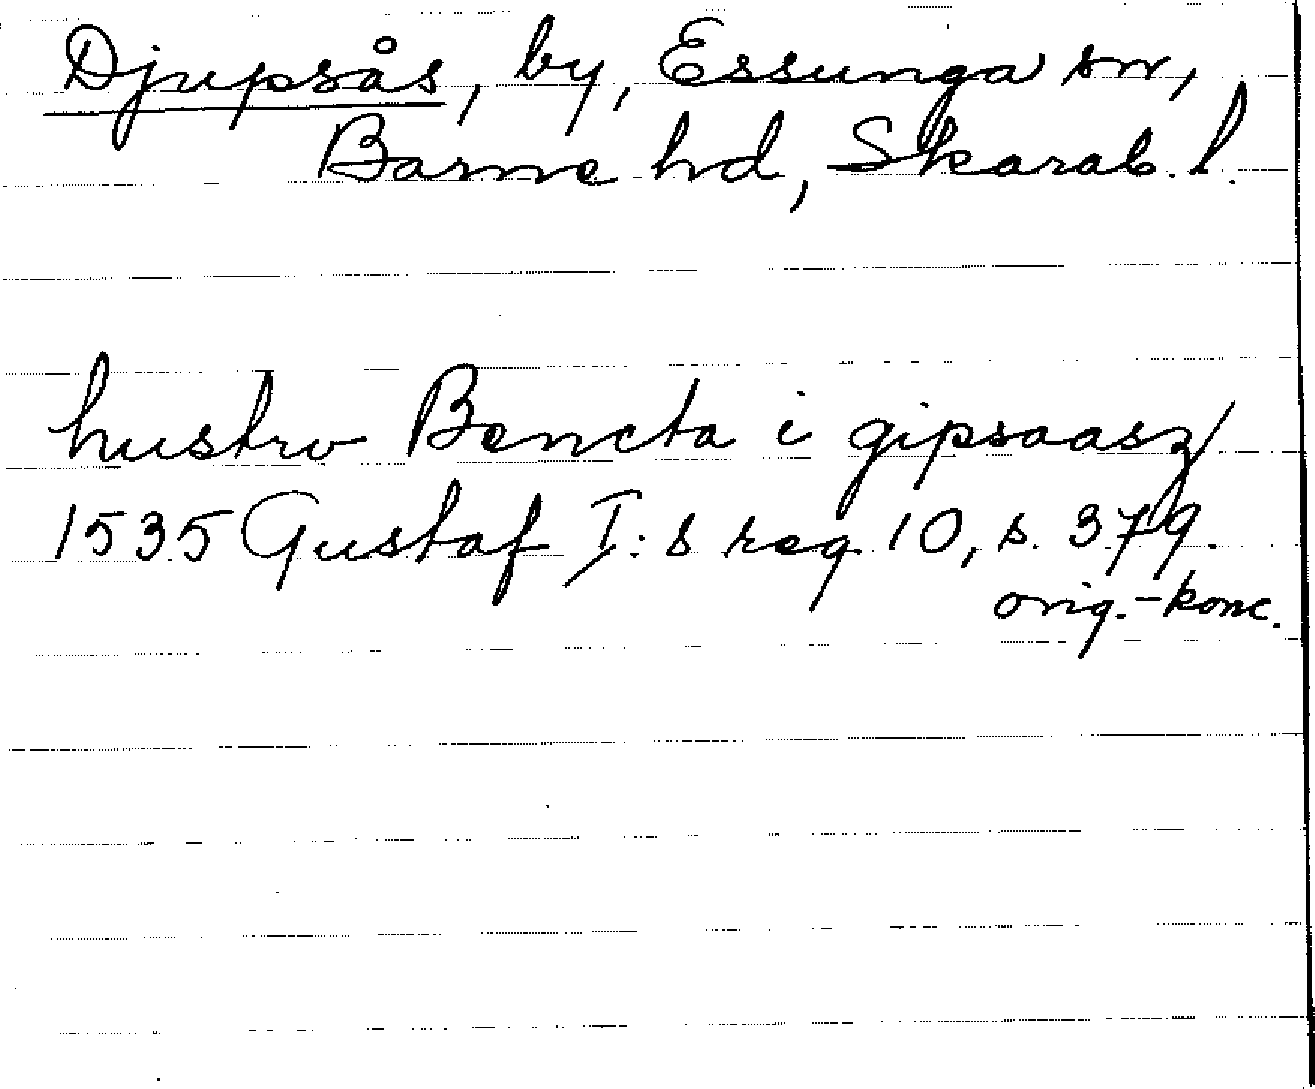 Djupsås, by, Essunga sn,
Barne hd, Skarab. l.
hustrv Bencta i gipsaasz
1535 Gustaf I:s reg 10, s. 379.
orig.-konc.